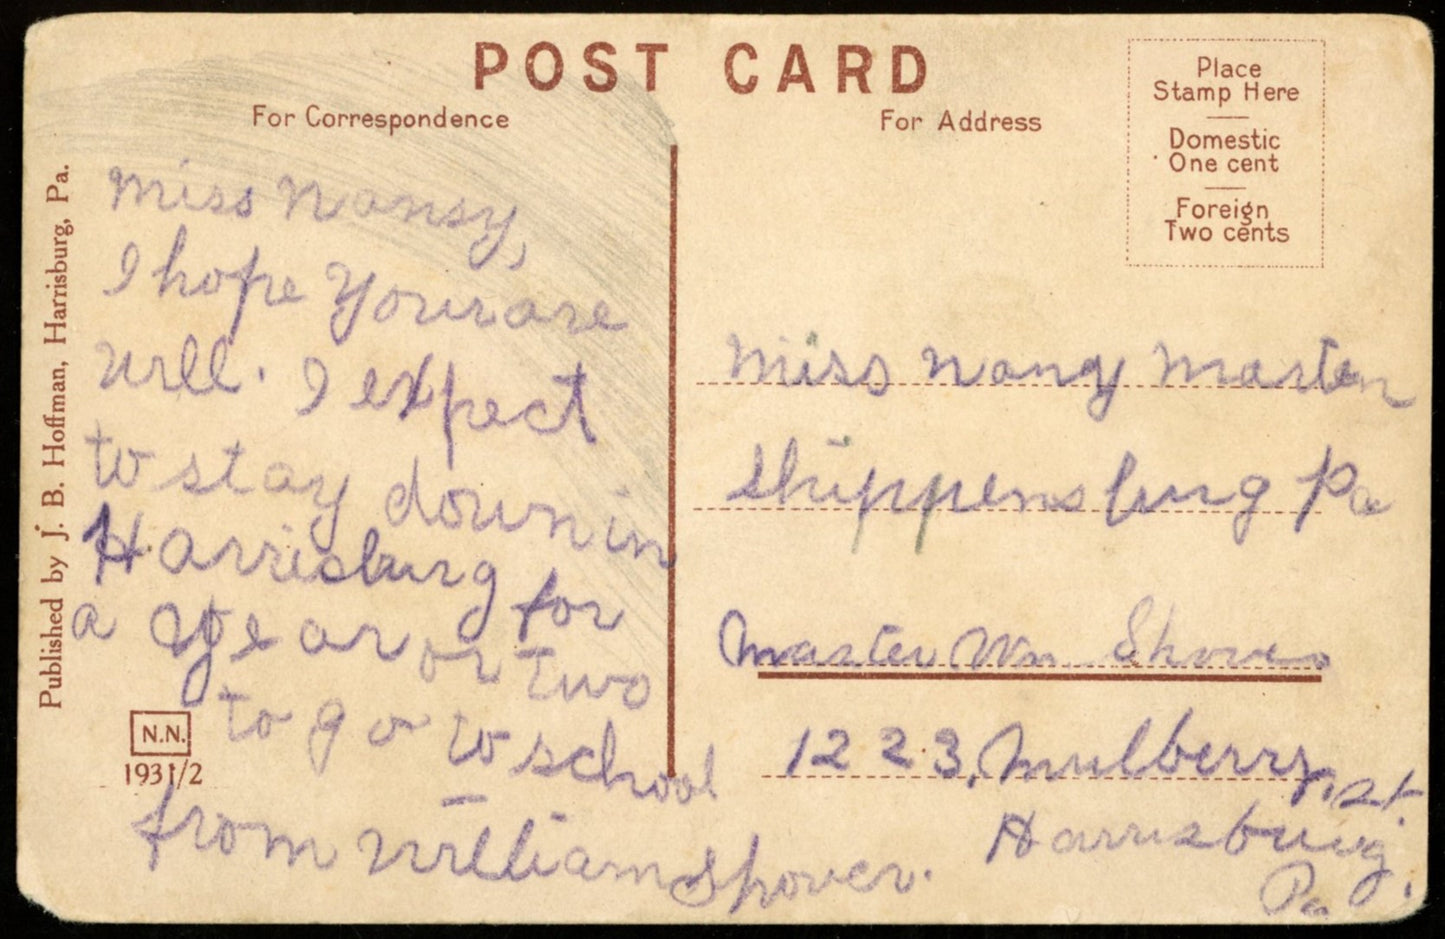 POST CARD
For Correspondence
For Address
Place
Stamp Here
Domestic
One cent
Foreign
Two cents
Published by J. B. Hoffman, Harrisburg, Pa.
Miss Nansy,
I hope Your are
well. I expect
to stay down in
Harrisburg for
a year or two
to go to school
from William Shover.
N.N.
1931/2
Miss Nany Marten
Shippensburg Pa
Master Wm. Shover
1223, Mulberry, st.
Harrisburg.
Pa.